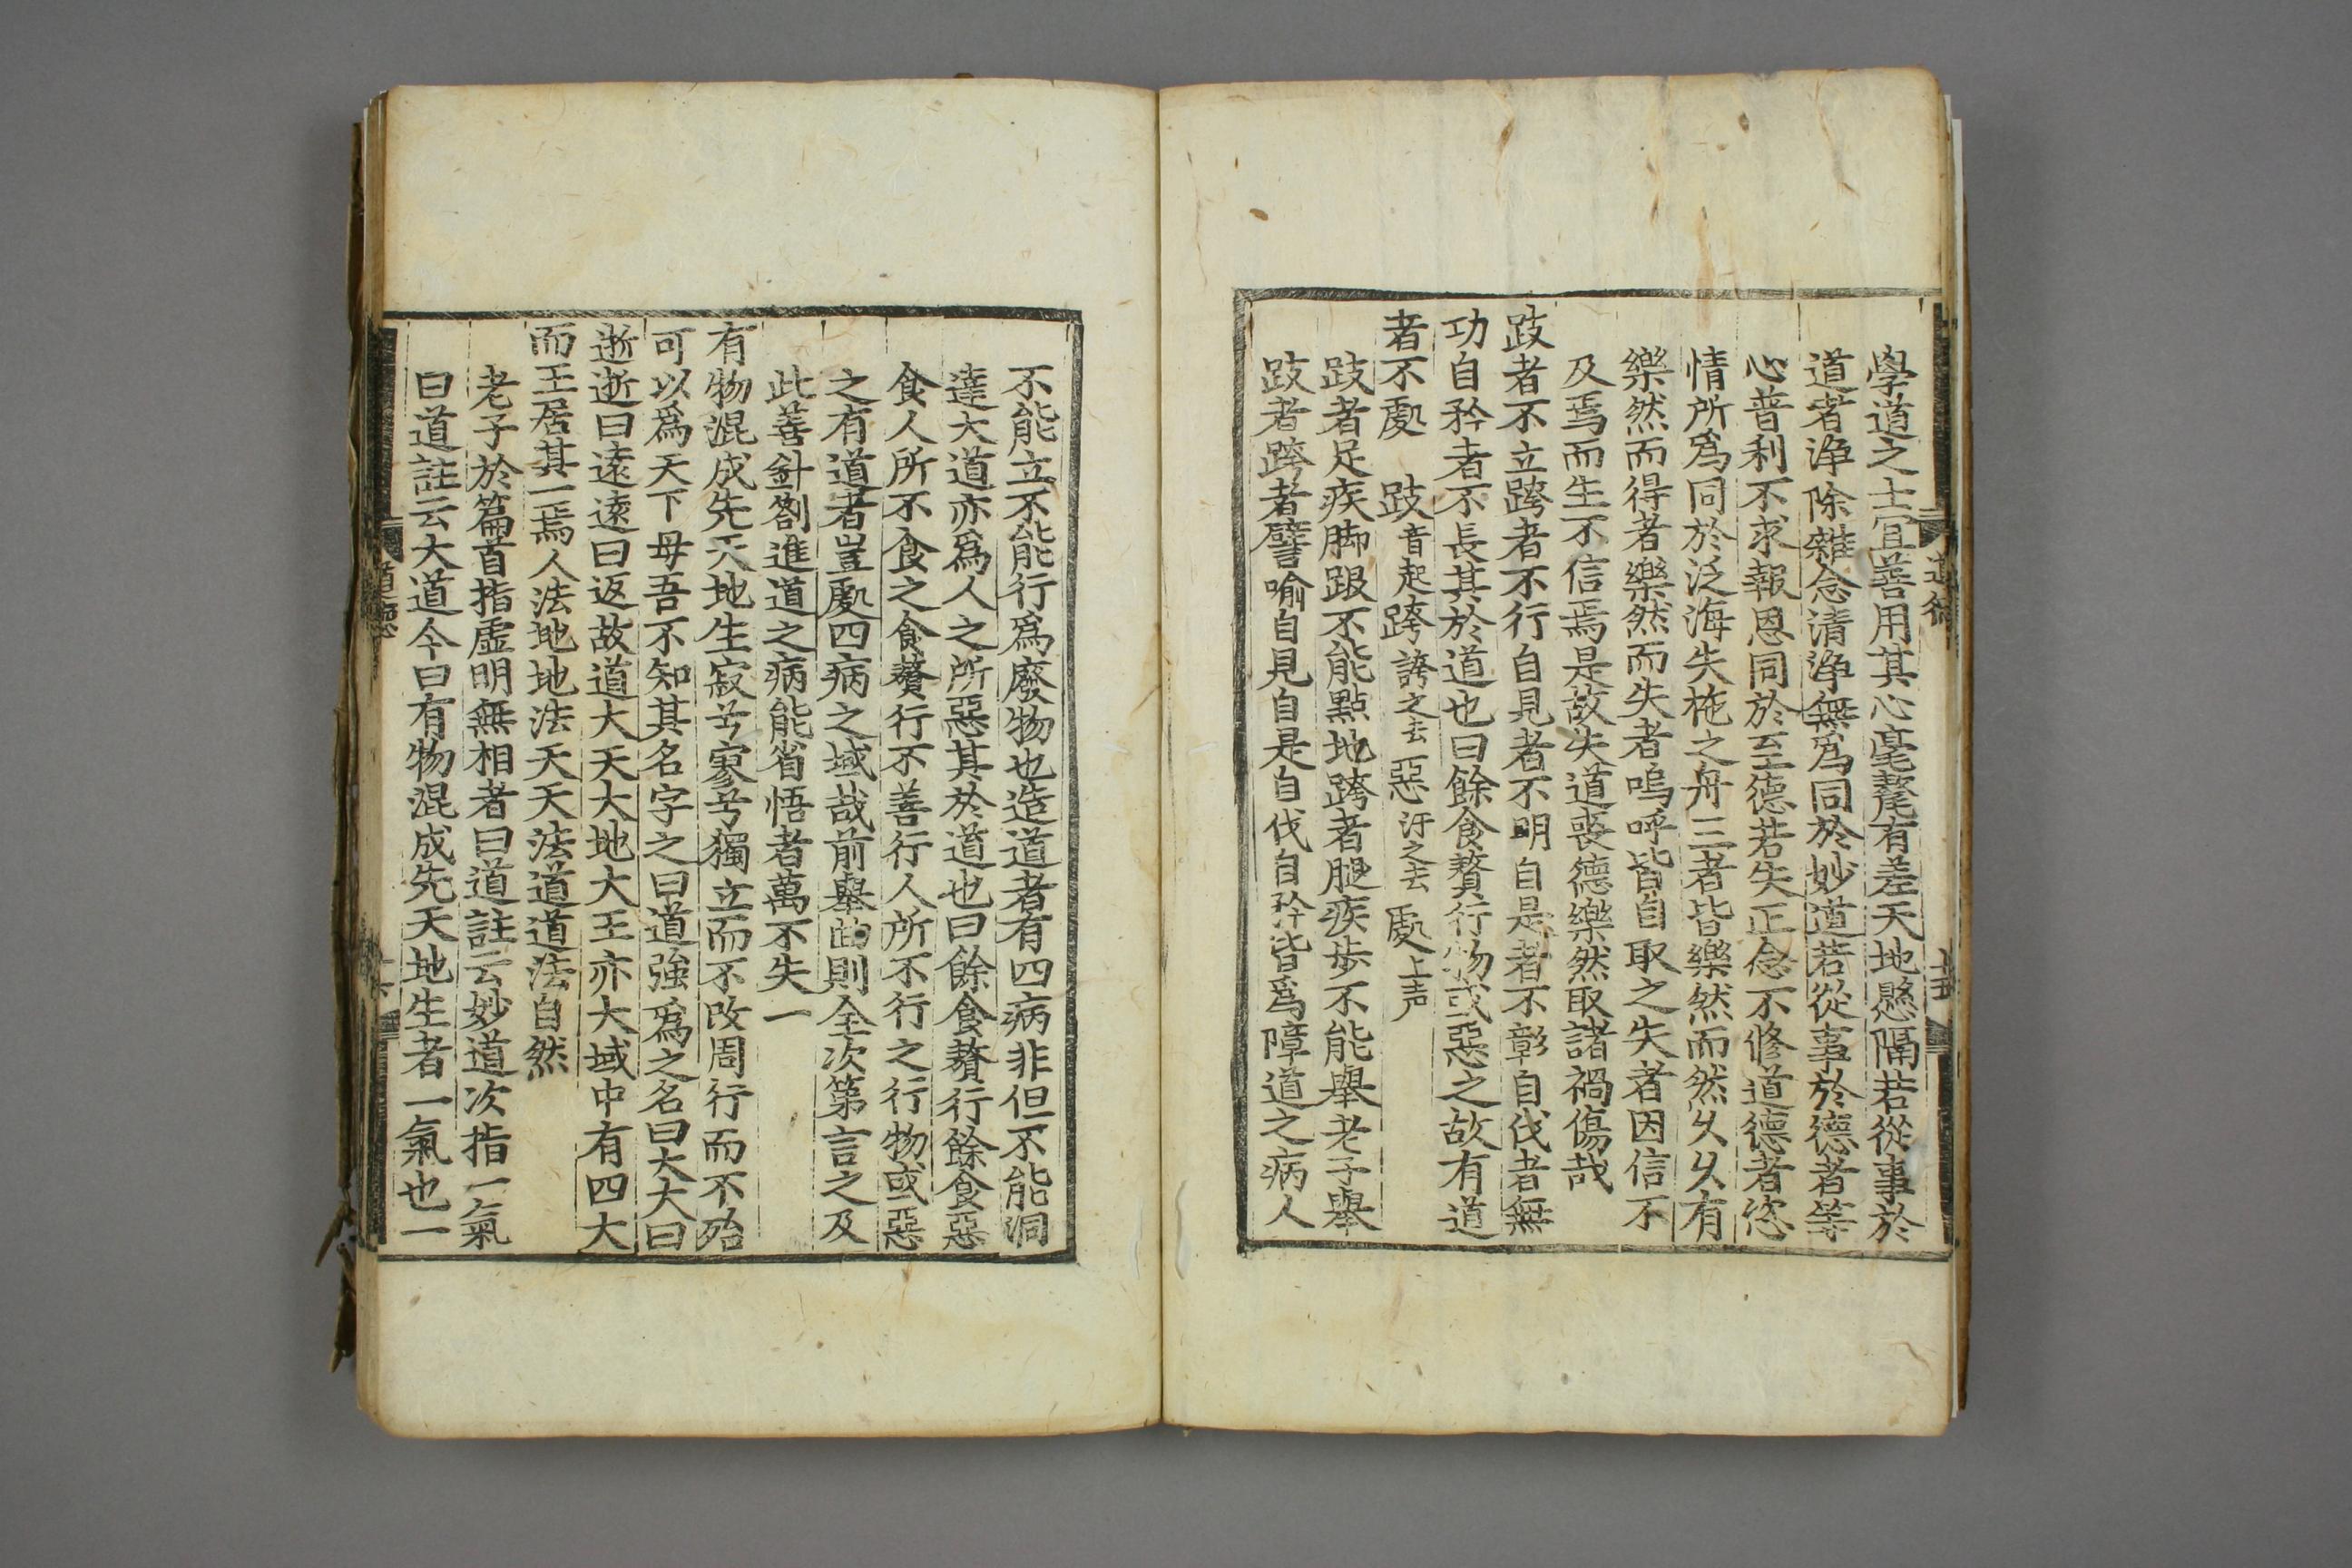 學道之士宜善用其心毫釐有差天地懸隔若從事於
道者淨除雜念清淨無爲同於妙道若從事於德者等
心普利不求報恩同於至德若失正念不修道德者恣
情所爲同於泛海失柂之舟三者皆樂然而然乆乆有
樂然而得者樂然而失者嗚呼皆自取之失者因信不
及焉而生不信焉是故失道喪德樂然取諸禍傷哉
跂者不立跨者不行自見者不明自是者不彰自伐者無
功自矜者不長其於道也曰餘食贅行物或惡之故有道
者不處 跂音起跨誇之去惡汙之去處上声
跂者足疾脚跟不能點地跨者腿疾歩不能舉老子舉
跂者跨者譬喻自見自是自伐自矜皆爲障道之病人
道德 十五
不能立不能行爲廢物也造道者有四病非但不能洞
達大道亦爲人之所惡其於道也曰餘食贅行餘食惡
食人所不食之食贅行不善行人所不行之行物或惡
之有道者豈處四病之域哉前舉曲則全次第言之及
此善針劄進道之病能省悟者萬不失一
有物混成先天地生寂兮寥兮獨立而不改周行而不殆
可以爲天下母吾不知其名字之曰道強爲之名曰大大曰
逝逝曰遠遠曰返故道大天大地大王亦大域中有四大
而王居其一焉人法地地法天天法道道法自然
老子於篇首指虛明無相者曰道註云妙道次指一氣
曰道註云大道今曰有物混成先天地生者一氣也一
道德